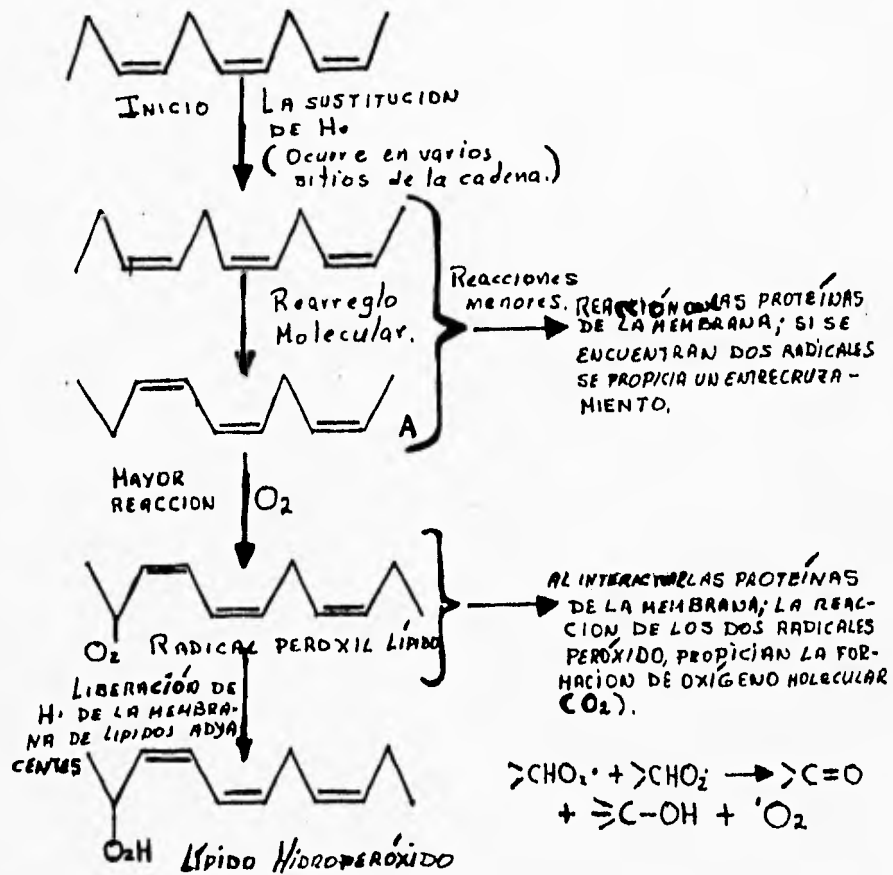 INICIO
LA SUSTITUCION
DE H•
(Ocurre en varios
sitios de la cadena.)
Rearreglo
Molecular.
Reacciones
menores.
REACCIÓN LAS PROTEÍNAS
DE LA MEMBRANA; SI SE
ENCUENTRAN DOS RADICALES
SE PROPICIA UN ENTRECRUZA-
MIENTO.
A
MAYOR
REACCION
O2
O2 RADICAL PEROXIL LÍPIDO
AL INTERACTUAR LAS PROTEÍNAS
DE LA MEMBRANA; LA REAC-
CION DE LOS DOS RADICALES
PERÓXIDO, PROPICIAN LA FOR-
MACION DE OXÍGENO MOLECULAR
(O2).
LIBERACIÓN DE
H• DE LA MEMBRA-
NA DE LÍPIDOS ADYA
CENTES
>CHO2• + >CHO2• → >C=O
+ ⩾C-OH + 'O2
O2H
LÍPIDO HIDROPERÓXIDO